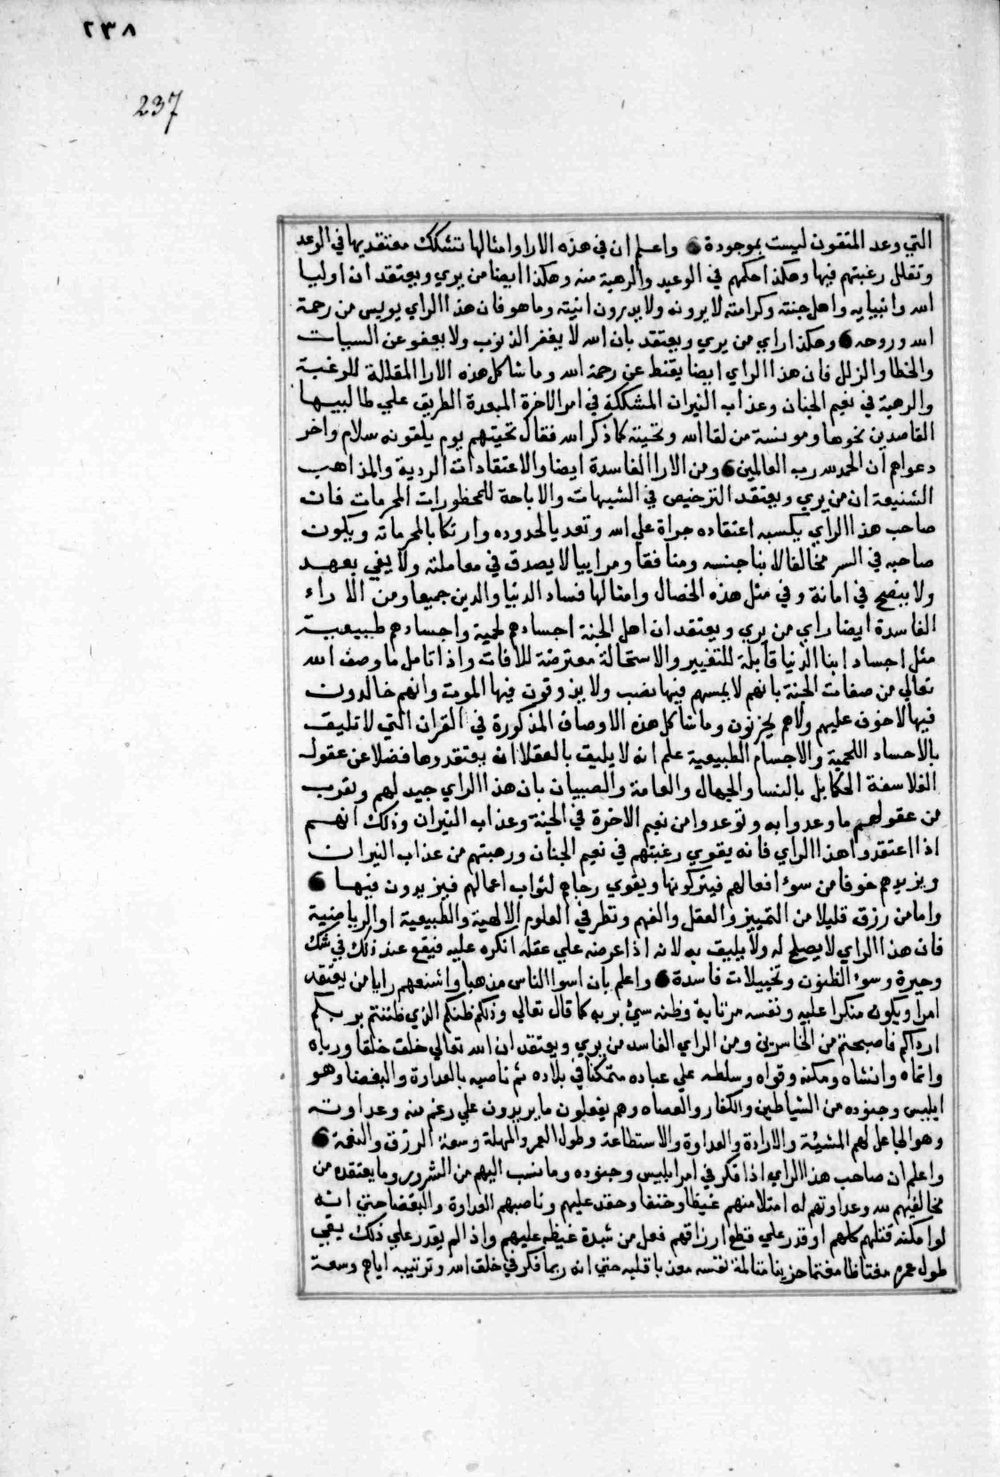 ٢٣٨
237
التي وعد المتقون ليست بموجودة واعلم ان في هذه الارا وامثالها تشكك معتقديها في الوعد
وتقلل رغبتهم فيها وهكذا حكمهم في الوعيد والرهبة منه وهكذا ايضا من يري ويعتقد ان اوليا
الله وانبيايه واهل جنته وكرامته لا يرونه ولا يدرون انيته وما هو فان هذا الراي يويس من رحمة
الله وروحه وهكذا راي من يري ويعتقد بان الله لا يغفر الذنوب ولا يعفو عن السيات
والخطا والزلل فان هذا الراي ايضا يقنط عن رحمة الله وما شاكل هذه الارا المقللة للرغبة
والرهبة في نعيم الجنان وعذاب النيران المشككة في امر الاخرة المبعدة الطريق علي طالبيها
القاصدين نحوها وموئسة من لقا الله وتحيته كما ذكر الله فقال تحيتهم يوم يلقونه سلام واخر
دعواهم ان الحمد لله رب العالمين ومن الارا الفاسدة ايضا والاعتقادات الردية والمذاهب
الشنيعة ان من يري ويعتقد الترخيص في الشبهات والاباحة للمحظورات المحرمات فان
صاحب هذا الراي يكسبه اعتقاده جراة علي الله وتعديا لحدوده وارتكابا لمحرماته ويكون
صاحبه في السر مخالفا لابنا جنسه ومنافقا ومراييا لا يصدق في معاملته ولا يفي بعهد
ولا ينصح في امانة وفي مثل هذه الخصال وامثالها فساد الدنيا والدين جميعا ومن الاراء
الفاسدة ايضا راي من يري ويعتقد ان اهل الجنة اجسادهم لحمية واجسادهم طبيعية
مثل اجساد ابنا الدنيا قابلة للتغيير والاستحالة معترضة للافات واذا تامل ما وصف الله
تعالي من صفات الجنة بانهم لا يمسهم فيها نصب ولا يذوقون فيها الموت وانهم خالدون
فيها لا خوف عليهم ولا هم يحزنون وما شاكل هذه الاوصاف المذكورة في القران التي لا تليق
بالاجساد اللحمية والاجسام الطبيعية علم انه لا يليق بالعقلا ان يعتقدوها فضلا عن عقول
الفلاسفة الحكما بل بالنسا والجهال والعامة والصبيان بان هذا الراي جيد لهم وتقرب
من عقولهم ما وعدوا به وتوعدوا من نعيم الاخرة في الجنة وعذاب النيران وذلك انهم
اذا اعتقدوا هذا الراي فانه يقوي رغبتهم في نعيم الجنان ورهبتهم من عذاب النيران
ويزيدهم خوفا من سوء افعالهم فيتركونها ويقوي رجاهم لثواب اعمالهم فيزيدون فيها
واما من رزق قليلا من التمييز والعقل والفهم ونظر في العلوم الالهية والطبيعية او الرياضية
فان هذا الراي لا يصلح له ولا يليق به لانه اذا عرضه علي عقله انكره عليه فيقع عند ذلك في شك
وحيرة وسوء الظنون وتخييلات فاسدة واعلم بان اسوا الناس مذهبا واشنعهم رايا من يعتقد
امرا ويكون منكرا عليه ونفسه مرتابة وظنه سيئ بربه كما قال تعالي وذلكم ظنكم الذي ظننتم بربكم
ارداكم فاصبحتم من الخاسرين ومن الراي الفاسد من يري ويعتقد ان الله تعالي خلق خلقا ورباه
واتماه وانشاه ومكنه وقواه وسلطه علي عباده متمكنا في بلاده ثم ناصبه بالعداوة والبغضا وهو
ابليس وجنوده من الشياطين والكفار والعصاه وهم يفعلون ما يريدون علي رغم منه وعداوته
وهو الجاعل لهم المشيئة والارادة والعداوة والاستطاعة وطول العمر والمهلة وسعة الرزق والنعمة
واعلم ان صاحب هذا الراي اذا فكر في امر ابليس وجنوده وما نسب اليهم من الشرور وما يعتقده من
مخالفتهم لله وعداوتهم له امتلا منهم غيظا وخنقا وحقد عليهم وناصبهم العداوة والبغضا حتي انه
لو امكنه قتلهم كلهم او قدر علي قطع ارزاقهم فعل من شدة غيظه عليهم واذا لم يقدر علي ذلك يبقي
طول عمره مغتاظا مغتما حزينا متالمة نفسه معذبا قلبه حتي انه ربما فكر في خلق الله وترتيبه اياهم وسعة